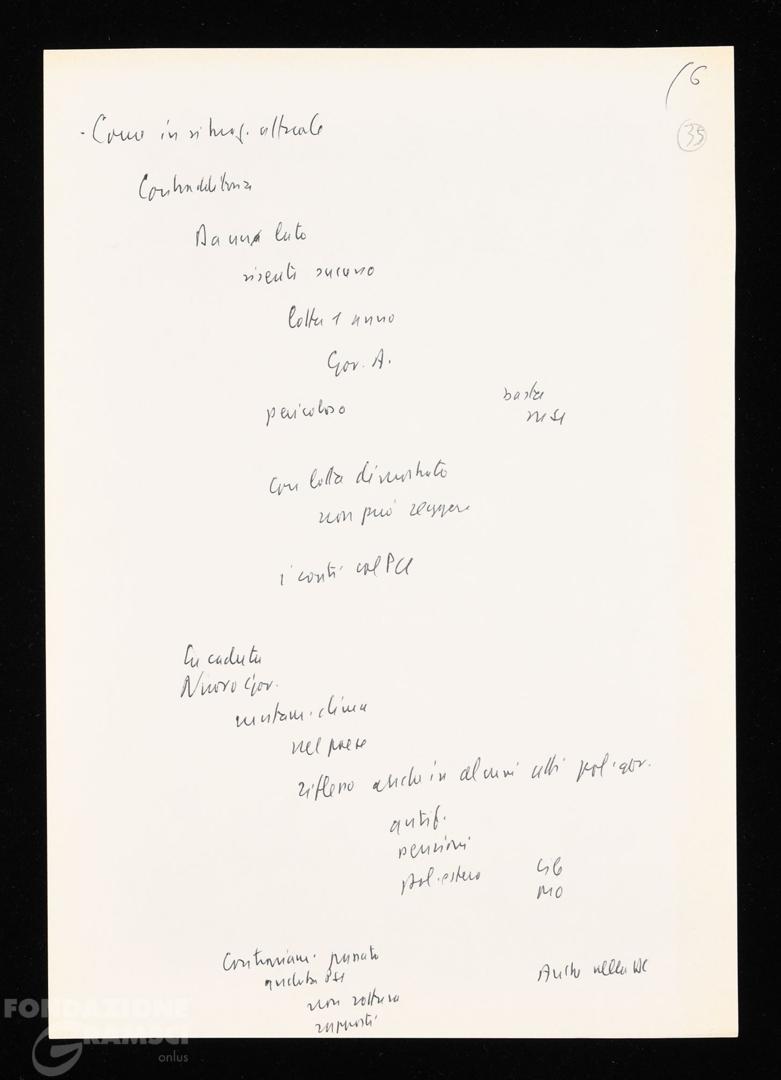 16
35
- Come in situaz. attuale
Contraddittoria
Da una lato
risenti successo
lotta 1 anno
Gov. A.
pericoloso
basta
con lotta dimostrato
non può reggere
i conti col PCI
La caduta
Nuovo Gov.
mutam. clima
nel paese
riflesso anche in alcuni atti pol. gov.
antif.
pensioni
pol. estera
MO
Anche nella DC
non rottura
rapporti
FONDAZIONE
GRAMSCI
onlus